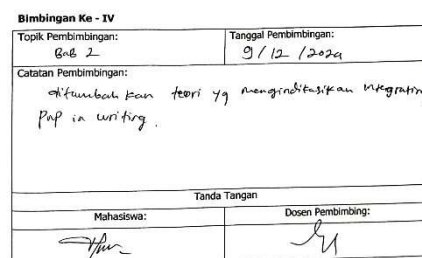 Bimbingan Ke - IV
Topik Pembimbingan:
BaB 2
Tanggal Pembimbingan:
9/12/2024
Catatan Pembimbingan:
ditambah kan teori yg mengindikasikan integratin
PnP in writing.
Tanda Tangan
Mahasiswa:
Dosen Pembimbing: